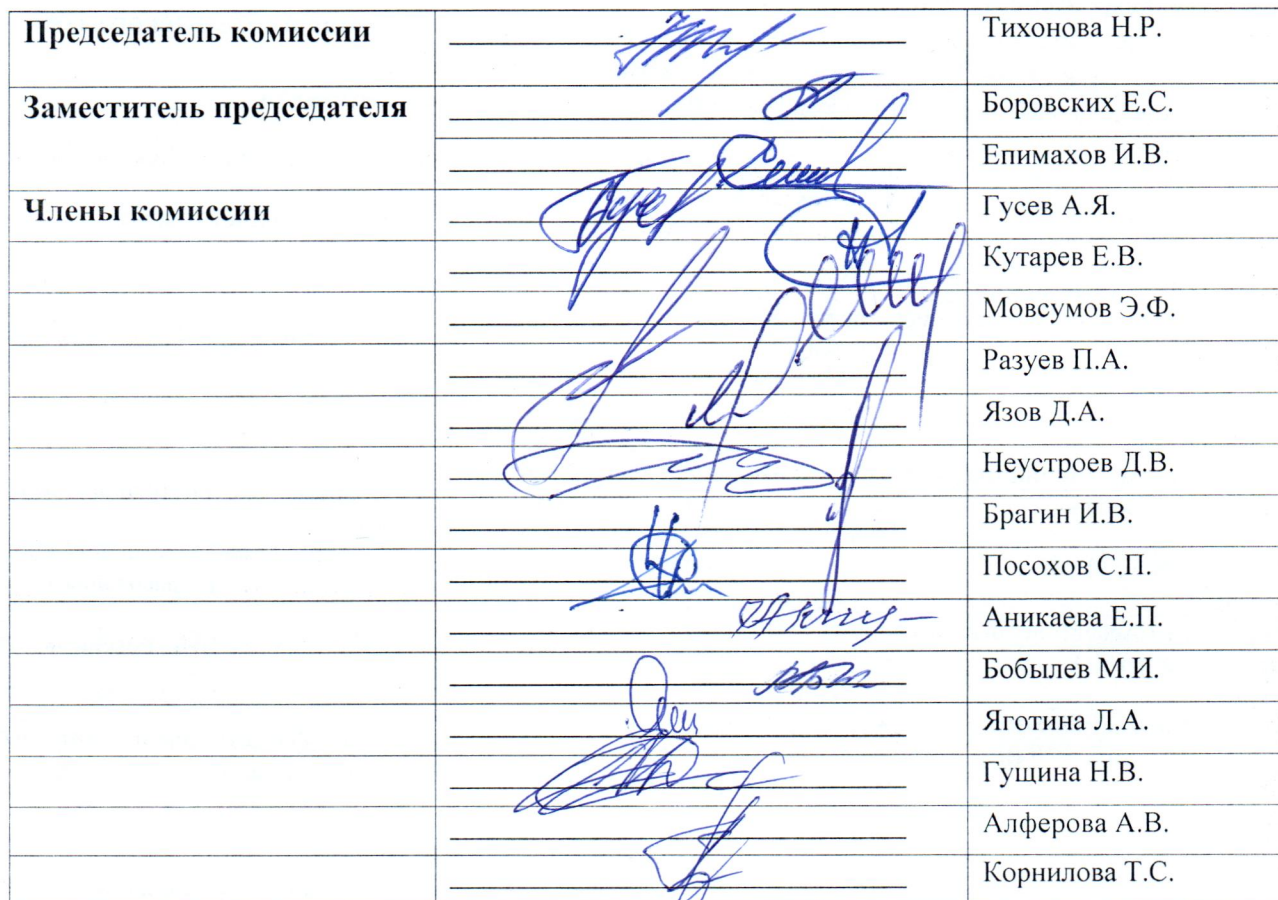 Председатель комиссии Тихонова Н.Р.
Заместитель председателя Боровских Е.С.
Епимахов И.В.
Члены комиссии Гусев А.Я.
Кутарев Е.В.
Мовсумов Э.Ф.
Разуев П.А.
Язов Д.А.
Неустроев Д.В.
Брагин И.В.
Посохов С.П.
Аникаева Е.П.
Бобылев М.И.
Яготина Л.А.
Гущина Н.В.
Алферова А.В.
Корнилова Т.С.